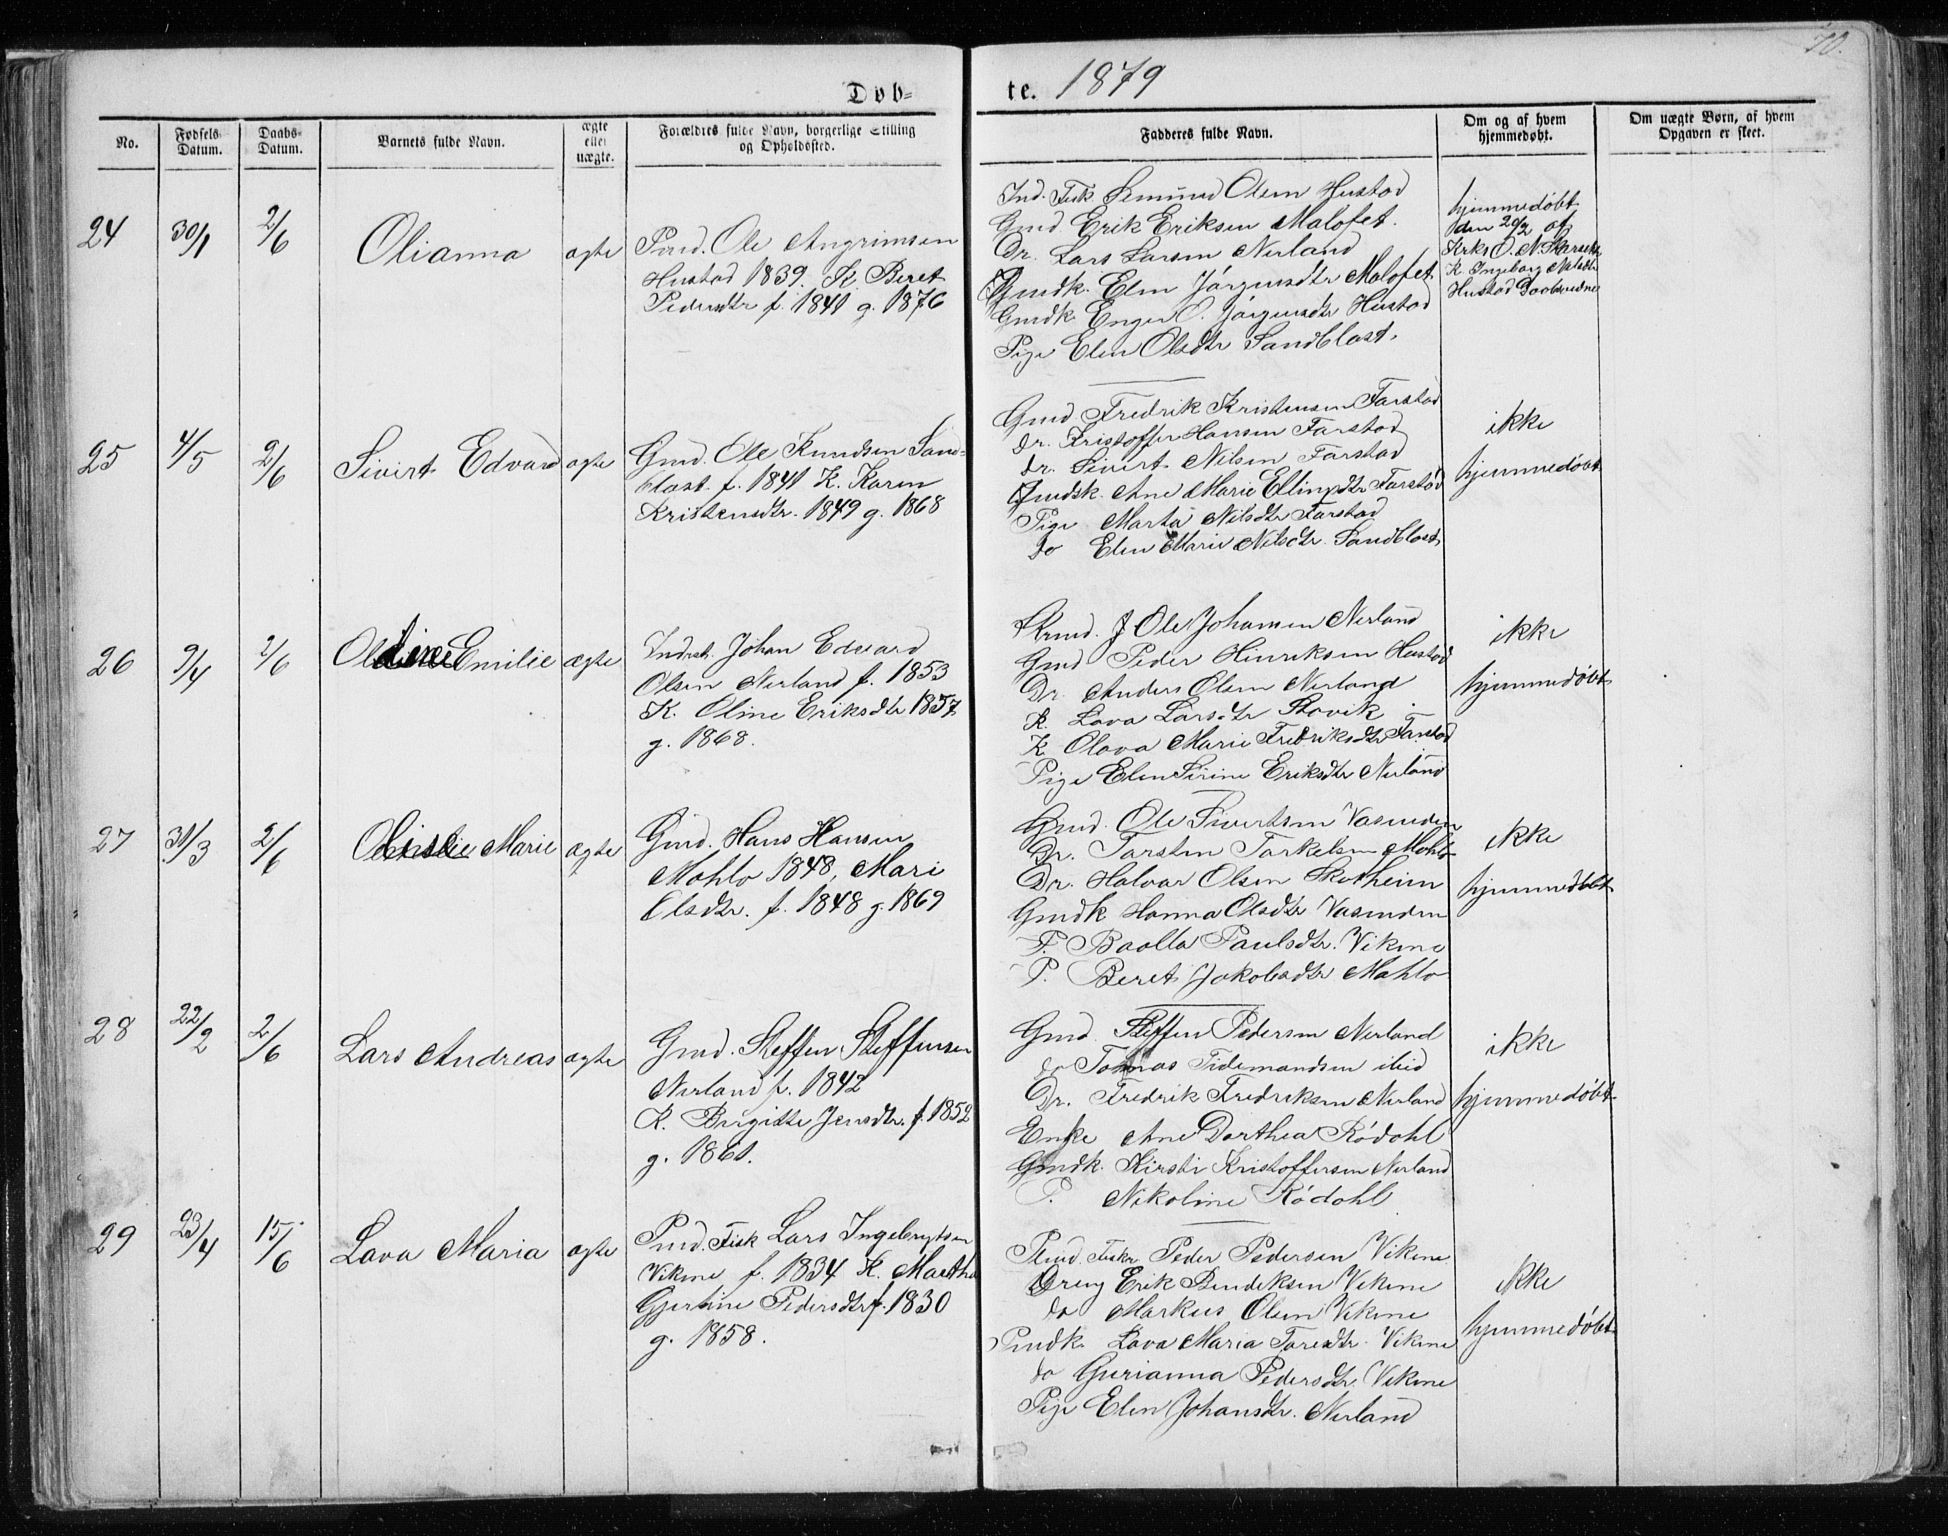 70.
Døb=
te. 1879
No.
Fødsels
Datum.
Daabs-
Datum.
Barnets fulde Navn.
ægte
eller
uægte.
Forældres fulde Navn, borgerlige Stilling
og Opholdssted.
Fadderes fulde Navn.
Om og af hvem
hjemmedøbt.
Om uægte Børn, af hvem
Opgaven er skeet.
24
30/1
2/6
Olianna
ægte
Pmd. Ole Angrimsen
Hustad 1839. K. Beret
Pedersdtr f. 1841 g. 1876
Ind. Fisk Semund Olsen Hustad
Gmd Erik Eriksen Malefet.
Dr. Lars Larsen Nerland
Gmdk. Elen Jørgensdtr Malefet
Gmdk Enger O. Jørgensdtr Hustad
Pige Elen Olsdtr Sandblast.
hjemmedøbt
den 20/2 af
Krks O. N.
K Ingeborg Nilsdtr
Hustad
25
4/5
2/6
Sivert Edvard
ægte
Gmd. Ole Knudsen Sand-
blast. f. 1841 K. Karen
Kristensdtr. 1849 g. 1868
Gmd. Fredrik Kristensen Farstad
dr. Kristoffer Hansen Farstad
dr. Sivert Nilsen Farstad
Gmdsk. Ane Marie Ellingsdtr Farstad
Pige Marta Nilsdtr Farstad
do Elen Marie Nilsdtr. Sandblast
ikke
hjemmedøbt
26
9/4
2/6
Oldine Emilie
ægte
Indst. Johan Edvard
Olsen Nerland f. 1853
K. Oline Eriksdtr 1857
g. 1868.
Grmd. J Ole Johansen Nerland
Gmd Peder Hinriksen Hustad
Dr. Anders Olsen Nerland
K. Lava Larsdtr Stavik
K. Olava Marie Fredriksdtr Farstad
Pige Elen Sirine Eriksdtr Nerland
ikke
hjemmedøbt
27
31/3
2/6
Marie
ægte
Gmd. Hans Hansen
Mahlo 1848, Mari
Olsdtr. f. 1848 g. 1869
Gmd. Ole Sivertsen Vasenden
Dr. Tarsten Tarkelsen Mahlo
Dr. Halvar Olsen Skotheim
Gmdk Hanna Olsdtr Vasenden
P. Baolla Paulsdtr. Vikene
P. Beret Jakobsdtr Mahlo
ikke
hjemmedøbt
28
22/2
2/6
Lars Andreas
ægte
Gmd. Steffen Steffensen
Nerland f. 1842
K. Birgitte Jensdtr. f. 1852
g. 1861.
Gmd. Steffen Pedersen Nerland
do Tomas Tidemandsen ibid
Dr. Fredrik Fredriksen Nerland
Enke Ane Dorthea Rødahl
Gmdk. Kirsti Kristoffersen Nerland
P. Nikoline Rødahl
ikke
hjemmedøbt
29
23/4
15/6
Lava Maria
ægte
Pmd. Fisk Lars Ingebrigtsen
Vikene f. 1834 K. Martha
Gjertine Pedersdtr f. 1830
g. 1858.
Pmd. Fisker Peder Pedersen Vikene
Dreng Erik Bendiksen Vikene
do Markus Olsen Vikene
Pmdk. Lava Maria Taresdtr. Vikene
do Gurianna Pedersdtr. Vikene
Pige Elen Johansdtr. Nerland
ikke
hjemmedøbt